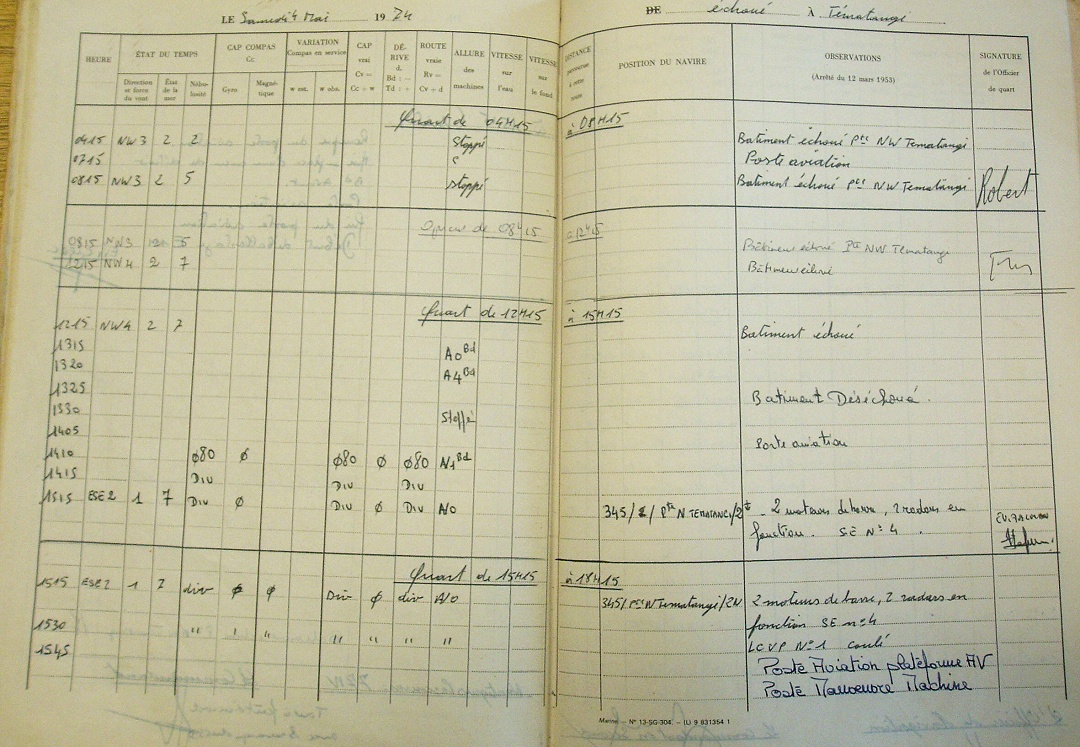 LE Samedi 4 Mai 1974
DE échoué À Tématangi
HEURE ÉTAT DU TEMPS CAP COMPAS Cc VARIATION Compas en service CAP vrai Cv = Cc + w DÉRIVE d. Bd : — Td : + ROUTE vraie Rv = Cv + d ALLURE des machines VITESSE sur l'eau VITESSE sur le fond DISTANCE POSITION DU NAVIRE OBSERVATIONS (Arrêté du 12 mars 1953) SIGNATURE de l'Officier de quart
Direction et force du vent État de la mer Nébulosité Gyro Magnétique w est. w obs.
Quart de 04H15 à 08H15
0415 NW3 2 2 Stoppé Batiment échoué Pte NW Tematangi
0715 Poste aviation
0815 NW3 2 5 stoppé Batiment échoué Pte NW Tematangi Robert
Quart de 08H15 à 12H15
0815 NW3 5 Bâtiment échoué Pte NW Tematangi
1215 NW4 2 7 Bâtiment échoué
Quart de 12H15 à 15H15
1215 NW4 2 7 Batiment échoué
1315 A0 Bd
1320 A4 Bd
1325 Batiment Déséchoué.
1330 Stoppé
1405 Poste aviation
1410 ø80 ø ø80 ø ø80
1415 Div Div Div
1515 ESE2 1 7 Div ø Div ø Div A/0 345/ / Pte N TEMATANGI/2 - 2 moteurs de barre, 2 radars en
fonction. SE N°4.
Quart de 15H15 à 18H15
1515 ESE2 1 2 div ø ø Div ø div A/0 345/Pte N Tematangi/2N 2 moteurs de barre, 2 radars en
fonction SE n°4
1530 " " " " " " " LCVP N°1 coulé
1545 Poste Aviation plateforme AV
Poste Manoeuvre Machine
Marine. — N° 13-SG-304. — (L) 9 831354 1